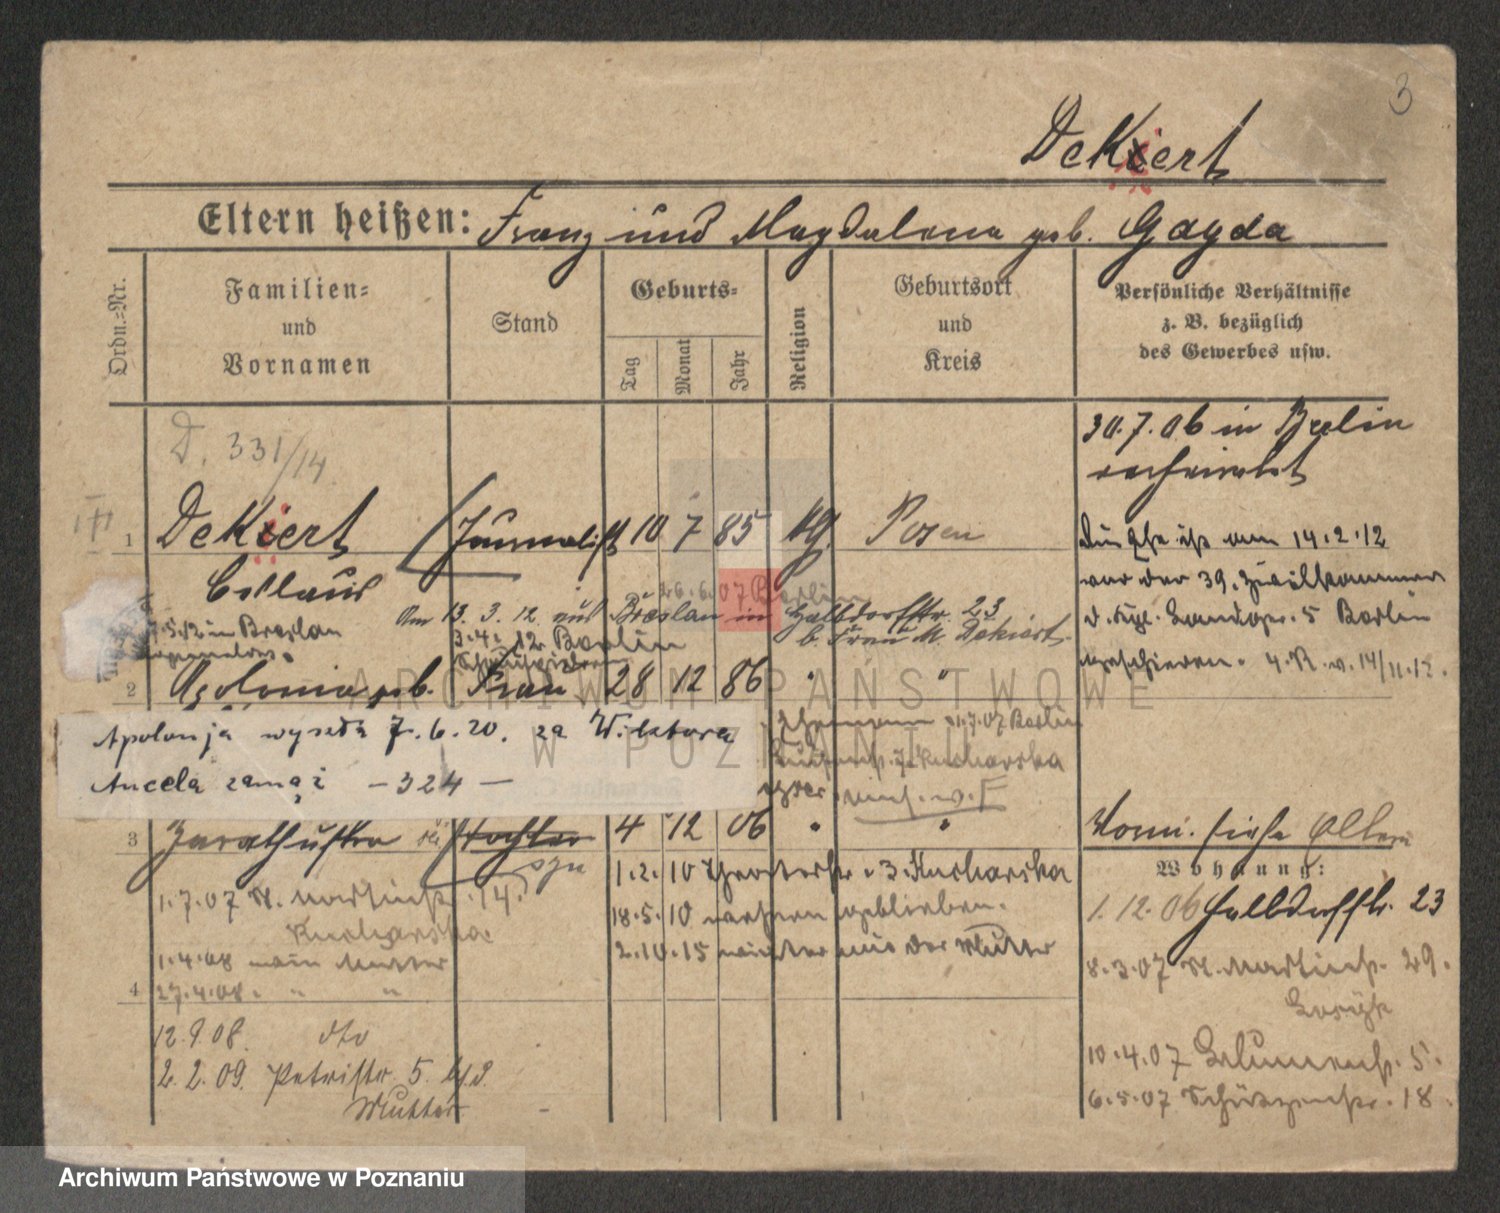 3
Dekiert
Eltern heißen: Franz und Magdalena geb. Gayda
Ordn.-Nr.
Familien-
und
Vornamen
Stand
Geburts-
Tag
Monat
Jahr
Religion
Geburtsort
und
Kreis
Persönliche Verhältnisse
z. B. bezüglich
des Gewerbes usw.
D. 331/14
30.7.06 in Berlin
verheiratet
1 Dekiert Journalist 10 7 85 kg. Posen
Die Ehe ist am 14.2.12
von der 39. Zivilkammer
d. Kgl. Landger. 5 Berlin
geschieden.
26.6.07 Berlin
Am 13.3.12 aus Breslau in Halbdorfstr. 23
b. Frau M. Dekiert
in Breslau
3.4.12 Berlin
2 Apolonia geb. Frau 28 12 86 " "
Apolonja wyszła 7.6.20. za Wiktora
Ancela zamąż – 324 –
Ehemann 1.7.07 Berlin
Kucharska
3 Zarathustra Tochter 4 12 06 " "
syn
Wohn. siehe Eltern
Wohnung:
1.12.06 Halbdorfstr. 23
8.3.07 St. Martinstr. 29.
10.4.07 Blumenstr. 5.
6.5.07 Schützenstr. 18
1.7.07 St. Martinstr. 14.
Kucharska
1.4.08 Mutter
4 27.4.08. " "
12.9.08. dto
2.2.09. Petristr. 5. b/d.
Mutter
1.2.10 Theaterstr. 3 Kucharska
18.5.10 geblieben.
2.10.15 der Mutter
ARCHIWUM PAŃSTWOWE
W POZNANIU
Archiwum Państwowe w Poznaniu